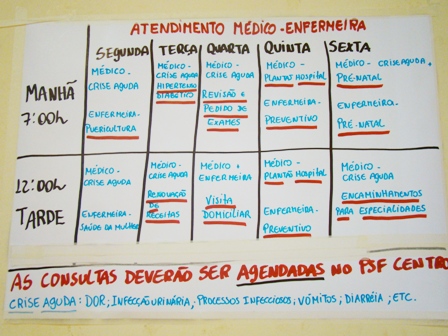 ATENDIMENTO MÉDICO-ENFERMEIRA
SEGUNDA TERÇA QUARTA QUINTA SEXTA
MANHÃ
7:00h
MÉDICO-
CRISE AGUDA
ENFERMEIRA-
PUERICULTURA
MÉDICO-
CRISE AGUDA
HIPERTENSO
DIABÉTICO
MÉDICO-
CRISE AGUDA
REVISÃO E
PEDIDO DE
EXAMES
MÉDICO-
PLANTÃO HOSPITAL
ENFERMEIRA-
PREVENTIVO
MÉDICO-CRISE AGUDA+
PRÉ-NATAL
ENFERMEIRO-
PRÉ-NATAL
12:00h
TARDE
MÉDICO-
CRISE AGUDA
ENFERMEIRA-
SAÚDE DA MULHER
MÉDICO-
CRISE AGUDA
RENOVAÇÃO
DE
RECEITAS
MÉDICO +
ENFERMEIRA
VISITA
DOMICILIAR
MÉDICO-
PLANTÃO HOSPITAL
ENFERMEIRA-
PREVENTIVO
MÉDICO-
CRISE AGUDA
ENCAMINHAMENTOS
PARA ESPECIALIDADES
AS CONSULTAS DEVERÃO SER AGENDADAS NO PSF CENTRO
CRISE AGUDA: DOR; INFECÇÃO URINÁRIA; PROCESSOS INFECCIOSOS; VÔMITOS; DIARRÉIA; ETC.